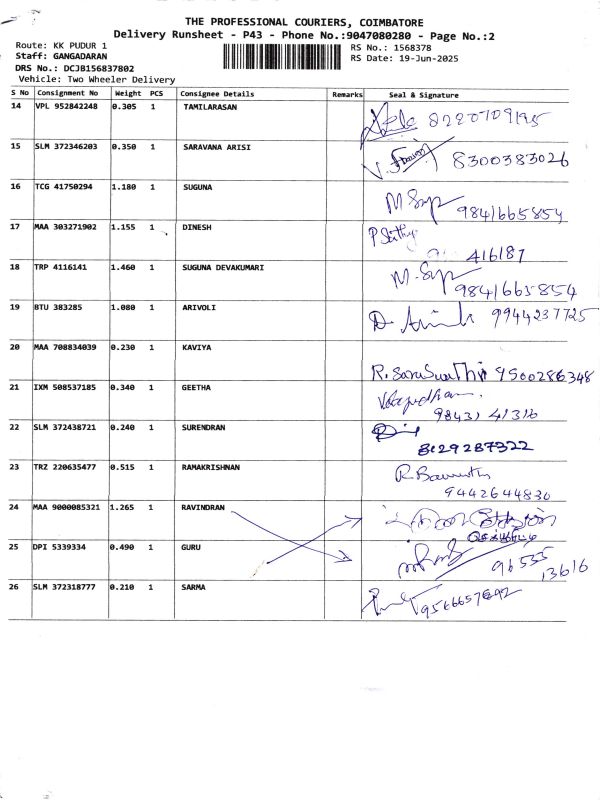 THE PROFESSIONAL COURIERS, COIMBATORE
Delivery Runsheet - P43 - Phone No.:9047080280 - Page No.:2
Route: KK PUDUR 1
RS No.: 1568378
Staff: GANGADARAN
RS Date: 19-Jun-2025
DRS No.: DCJB156837802
Vehicle: Two Wheeler Delivery
S No Consignment No Weight PCS Consignee Details Remarks Seal & Signature
14 VPL 952842248 0.305 1 TAMILARASAN 8220709195
15 SLM 372346203 0.350 1 SARAVANA ARISI 8300383026
16 TCG 41750294 1.180 1 SUGUNA 9841665854
17 MAA 303271902 1.155 1 DINESH 416187
18 TRP 4116141 1.460 1 SUGUNA DEVAKUMARI 9841665854
19 BTU 383285 1.080 1 ARIVOLI 9944237725
20 MAA 708834039 0.230 1 KAVIYA R. Saraswathi 9500286348
21 IXM 508537185 0.340 1 GEETHA
98431 41316
22 SLM 372438721 0.240 1 SURENDRAN 8129287322
23 TRZ 220635477 0.515 1 RAMAKRISHNAN
9442644830
24 MAA 9000085321 1.265 1 RAVINDRAN
25 DPI 5339334 0.490 1 GURU 96535
13616
26 SLM 372318777 0.210 1 SARMA